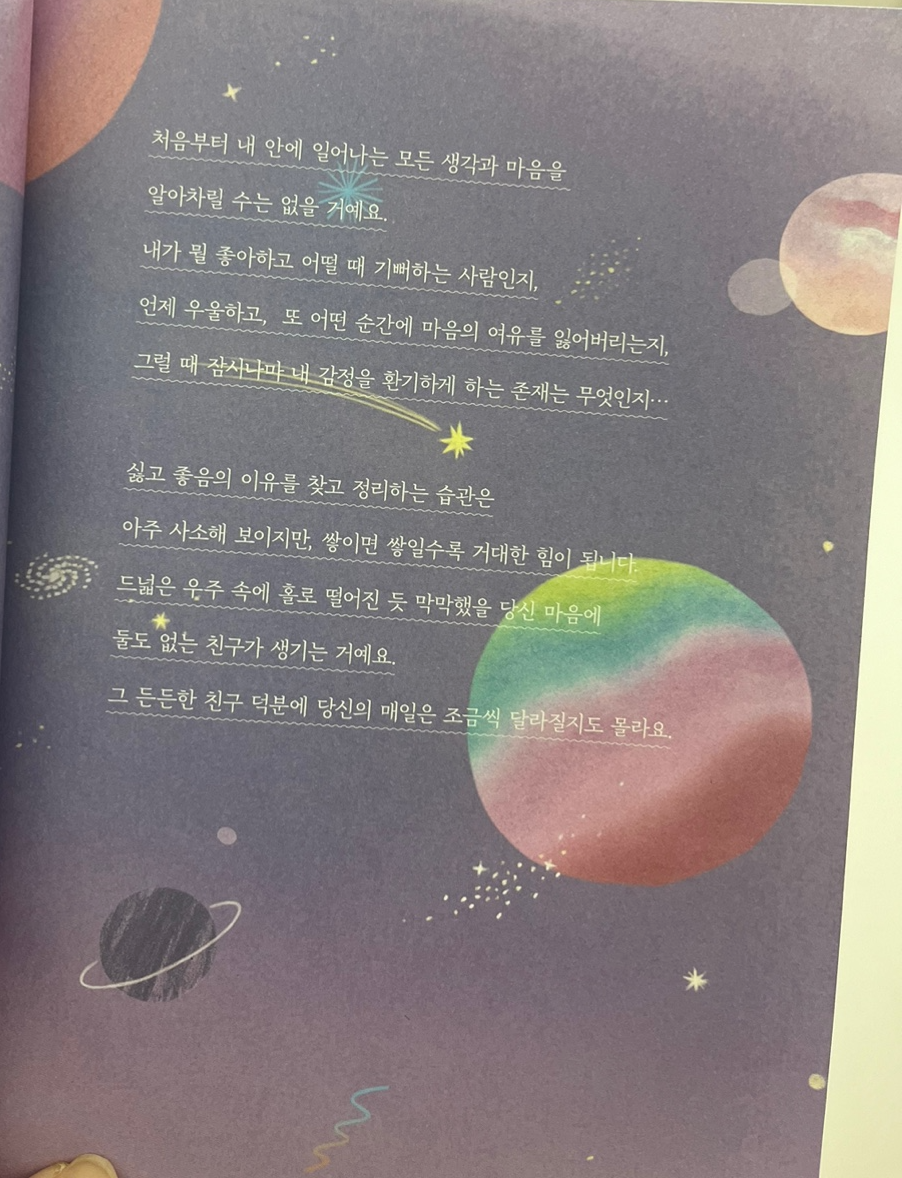 처음부터 내 안에 일어나는 모든 생각과 마음을
알아차릴 수는 없을 거예요.
내가 뭘 좋아하고 어떨 때 기뻐하는 사람인지,
언제 우울하고, 또 어떤 순간에 마음의 여유를 잃어버리는지,
그럴 때 잠시나마 내 감정을 환기하게 하는 존재는 무엇인지…
싫고 좋음의 이유를 찾고 정리하는 습관은
아주 사소해 보이지만, 쌓이면 쌓일수록 거대한 힘이 됩니다.
드넓은 우주 속에 홀로 떨어진 듯 막막했을 당신 마음에
둘도 없는 친구가 생기는 거예요.
그 든든한 친구 덕분에 당신의 매일은 조금씩 달라질지도 몰라요.